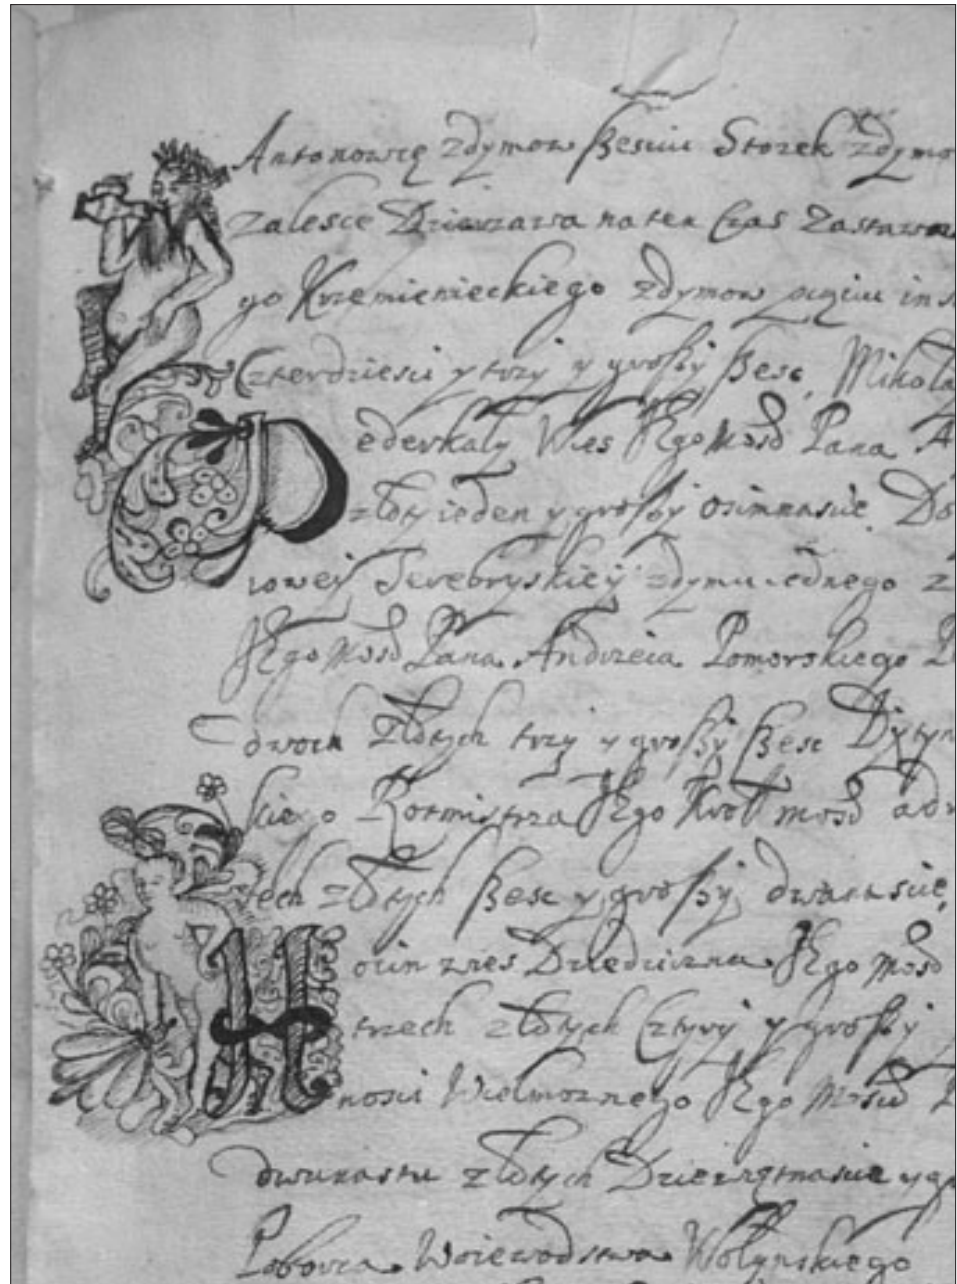 Antonowię zdymow sześciu Stożek zdymo
zalesce Dzierzawa na ten Czas Zastawna
go Krzemienieckiego zdymow pięciu in s
Czterdziesci y trzy y groszy szesc Mikoła
ederkały Wies JEgo Mosci Pana A
złoty ieden y groszy osimnascie Do
iowey Terebryskiey zdymu iednego z
JEgo Mosci Pana Andrzeia Pomorskiego
dwoch złotych trzy y groszy szesc Dytyn
kiego Rotmistrza JEgo Krol Mosci adn
rech złotych szesc y groszy dwanascie
orin wies Dziedziczna JEgo Mosci
trzech złotych Cztyry y groszy
nosci Wielmoznego JEgo Mosci P
dwunastu złotych Dziewiętnascie y gr
Łobovca Woiewodstwa Wołynskiego